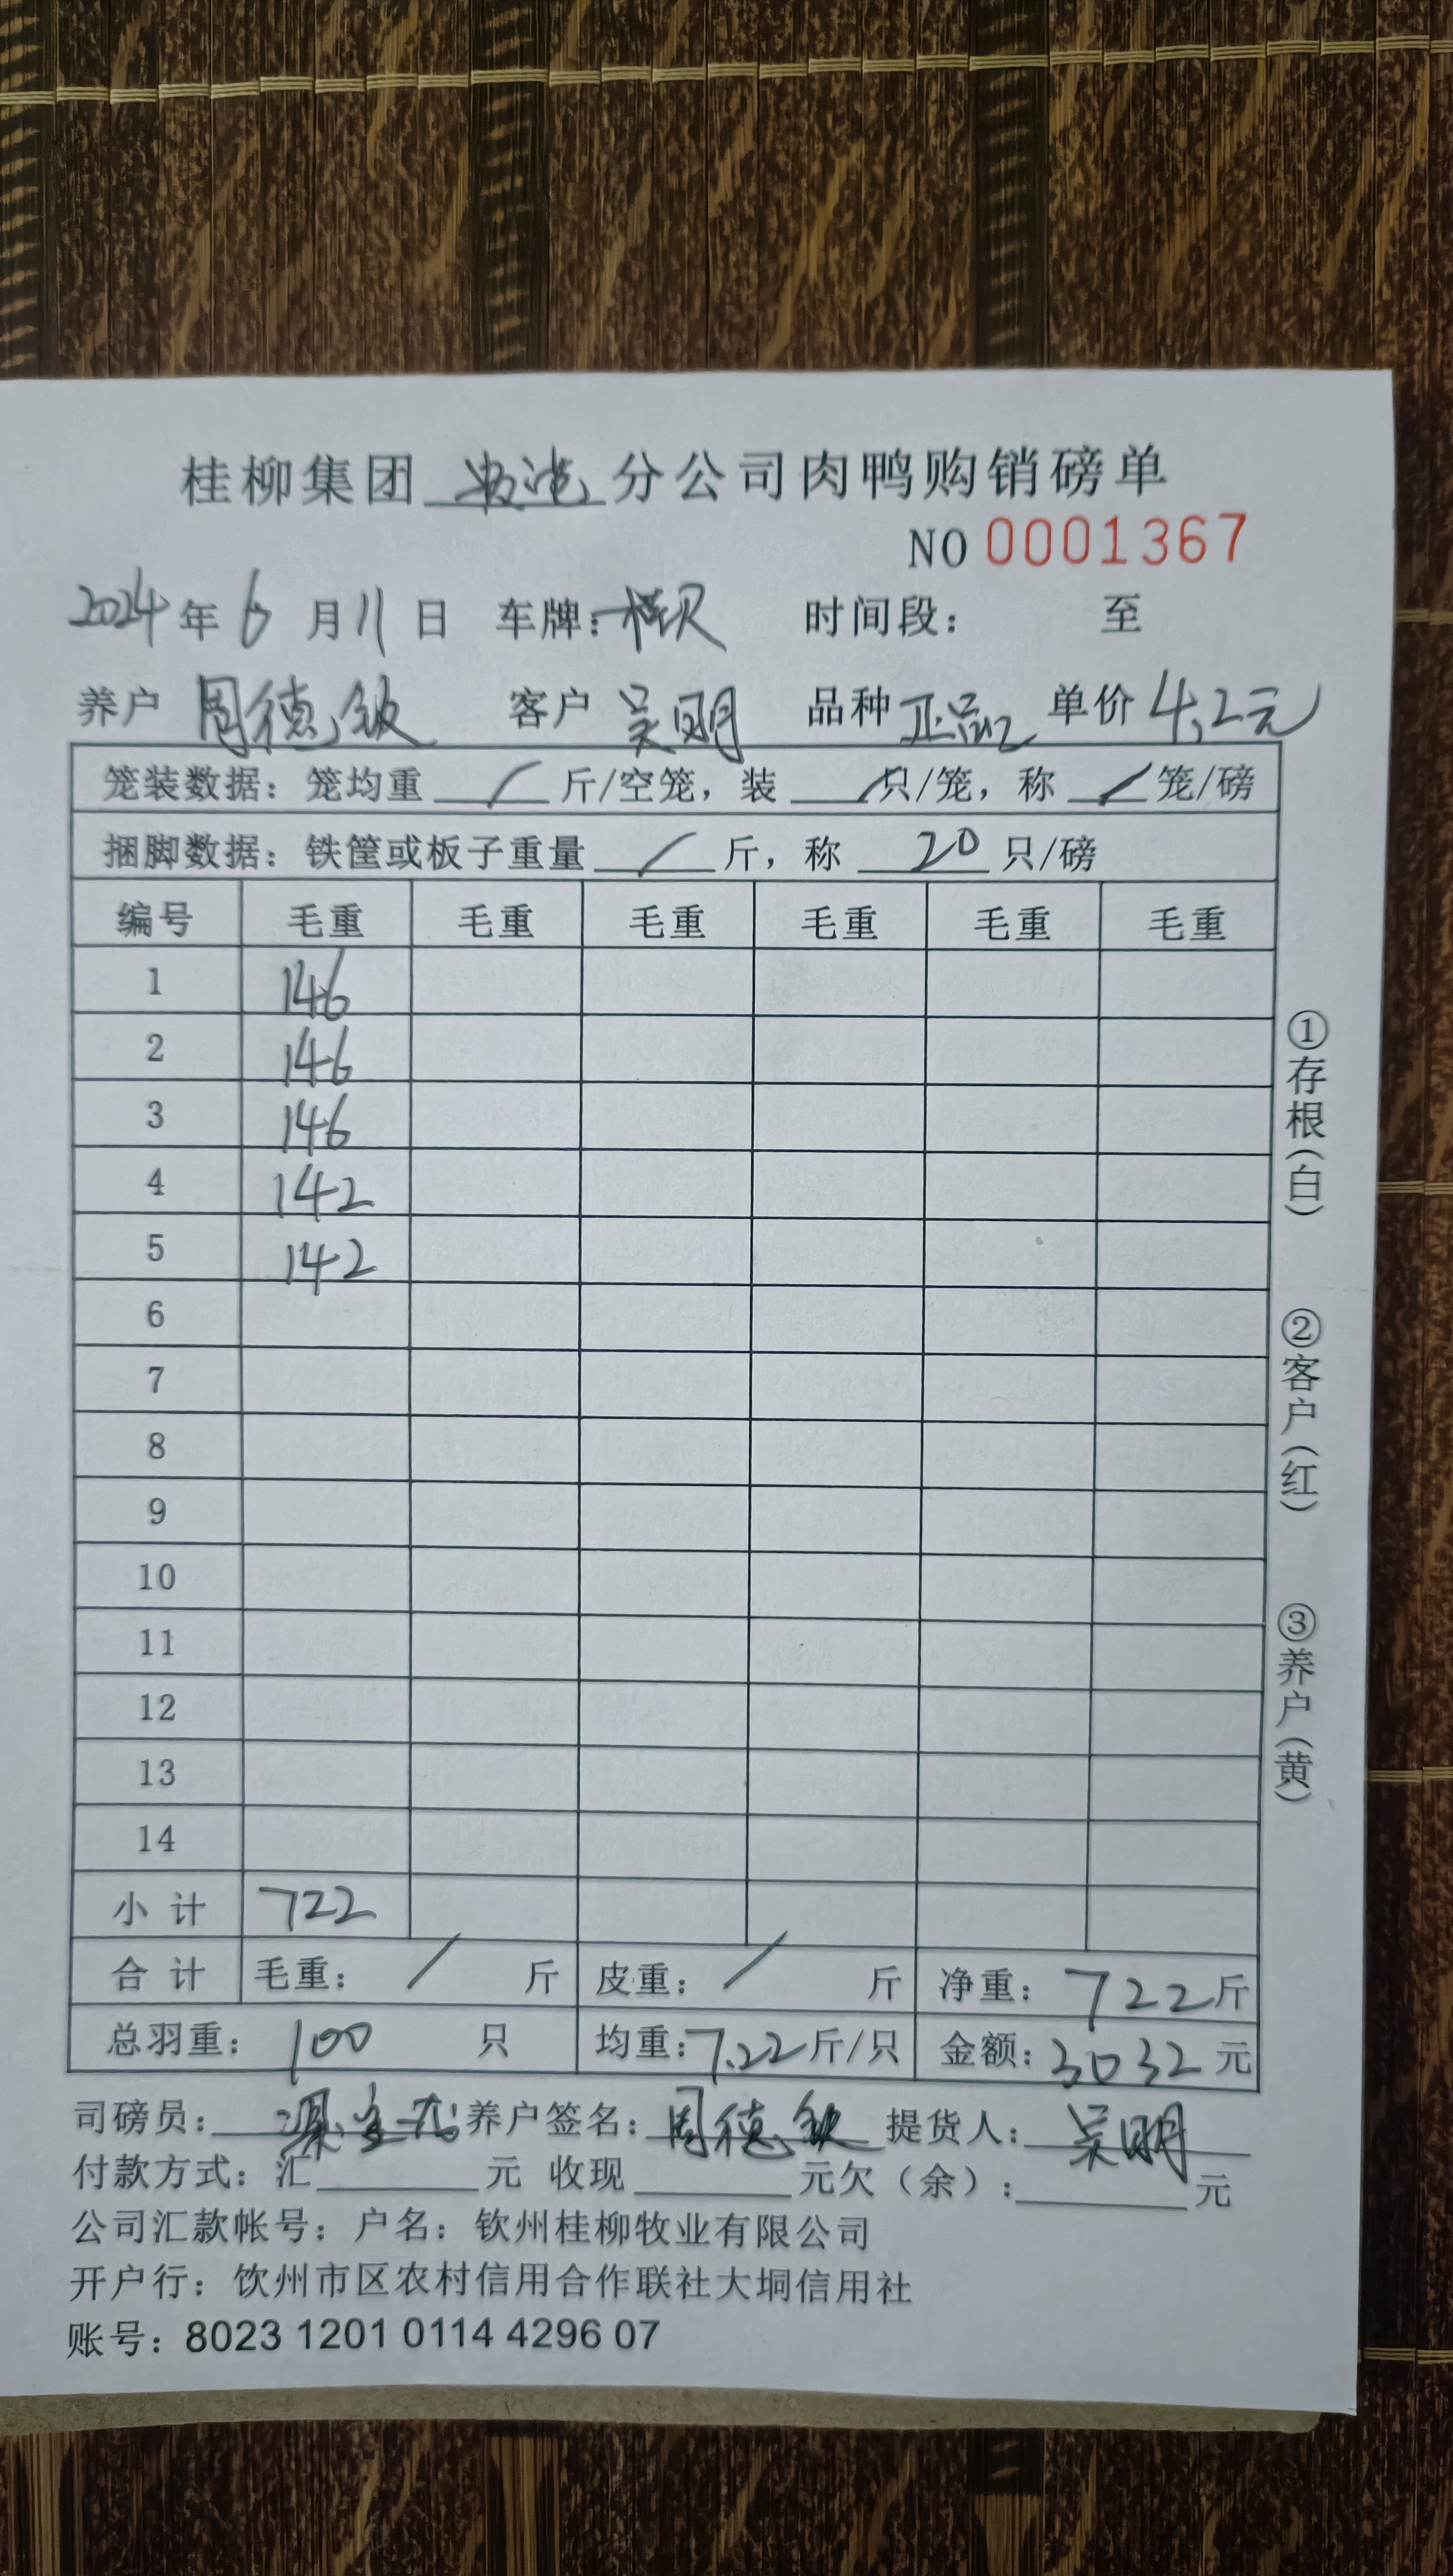 桂柳集团 分公司肉鸭购销磅单
NO 0001367
2024年6月11日 车牌： 时间段： 至
养户 周德钦 客户 吴明 品种 正品 单价 4.2元
笼装数据：笼均重 / 斤/空笼，装 / 只/笼，称 / 笼/磅
捆脚数据：铁筐或板子重量 / 斤，称 20 只/磅
编号 毛重 毛重 毛重 毛重 毛重 毛重
1 146
2 146
3 146
4 142
5 142
6
7
8
9
10
11
12
13
14
小计 722
合计 毛重： / 斤 皮重： / 斤 净重：722斤
总羽重：100 只 均重：7.22斤/只 金额：3032元
司磅员： 养户签名：周德钦 提货人：吴明
付款方式：汇 元 收现 元欠（余）： 元
公司汇款帐号：户名：钦州桂柳牧业有限公司
开户行：饮州市区农村信用合作联社大垌信用社
账号：8023 1201 0114 4296 07
①存根（白）
②客户（红）
③养户（黄）